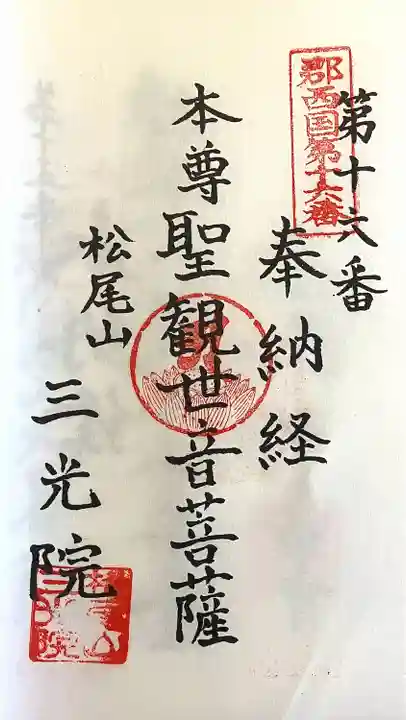 郡西国第十六番
第十六番
奉納経
本尊聖観世音菩薩
松尾山
三光院